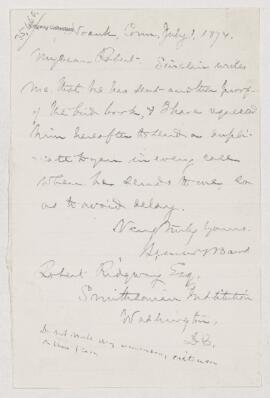 Noank, Conn, July 1, 1874.
My dear Robert. Sinclair writes
me that he has sent another proof
of the bird book, & I have requested
him hereafter to send a dupli-
cate to you in every case
when he sends to me, so
as to avoid delay.
Very truly yours.
Spencer F Baird
Robert Ridgway Esq.
Smithsonian Institution
Washington.
D.C.
Do not make any